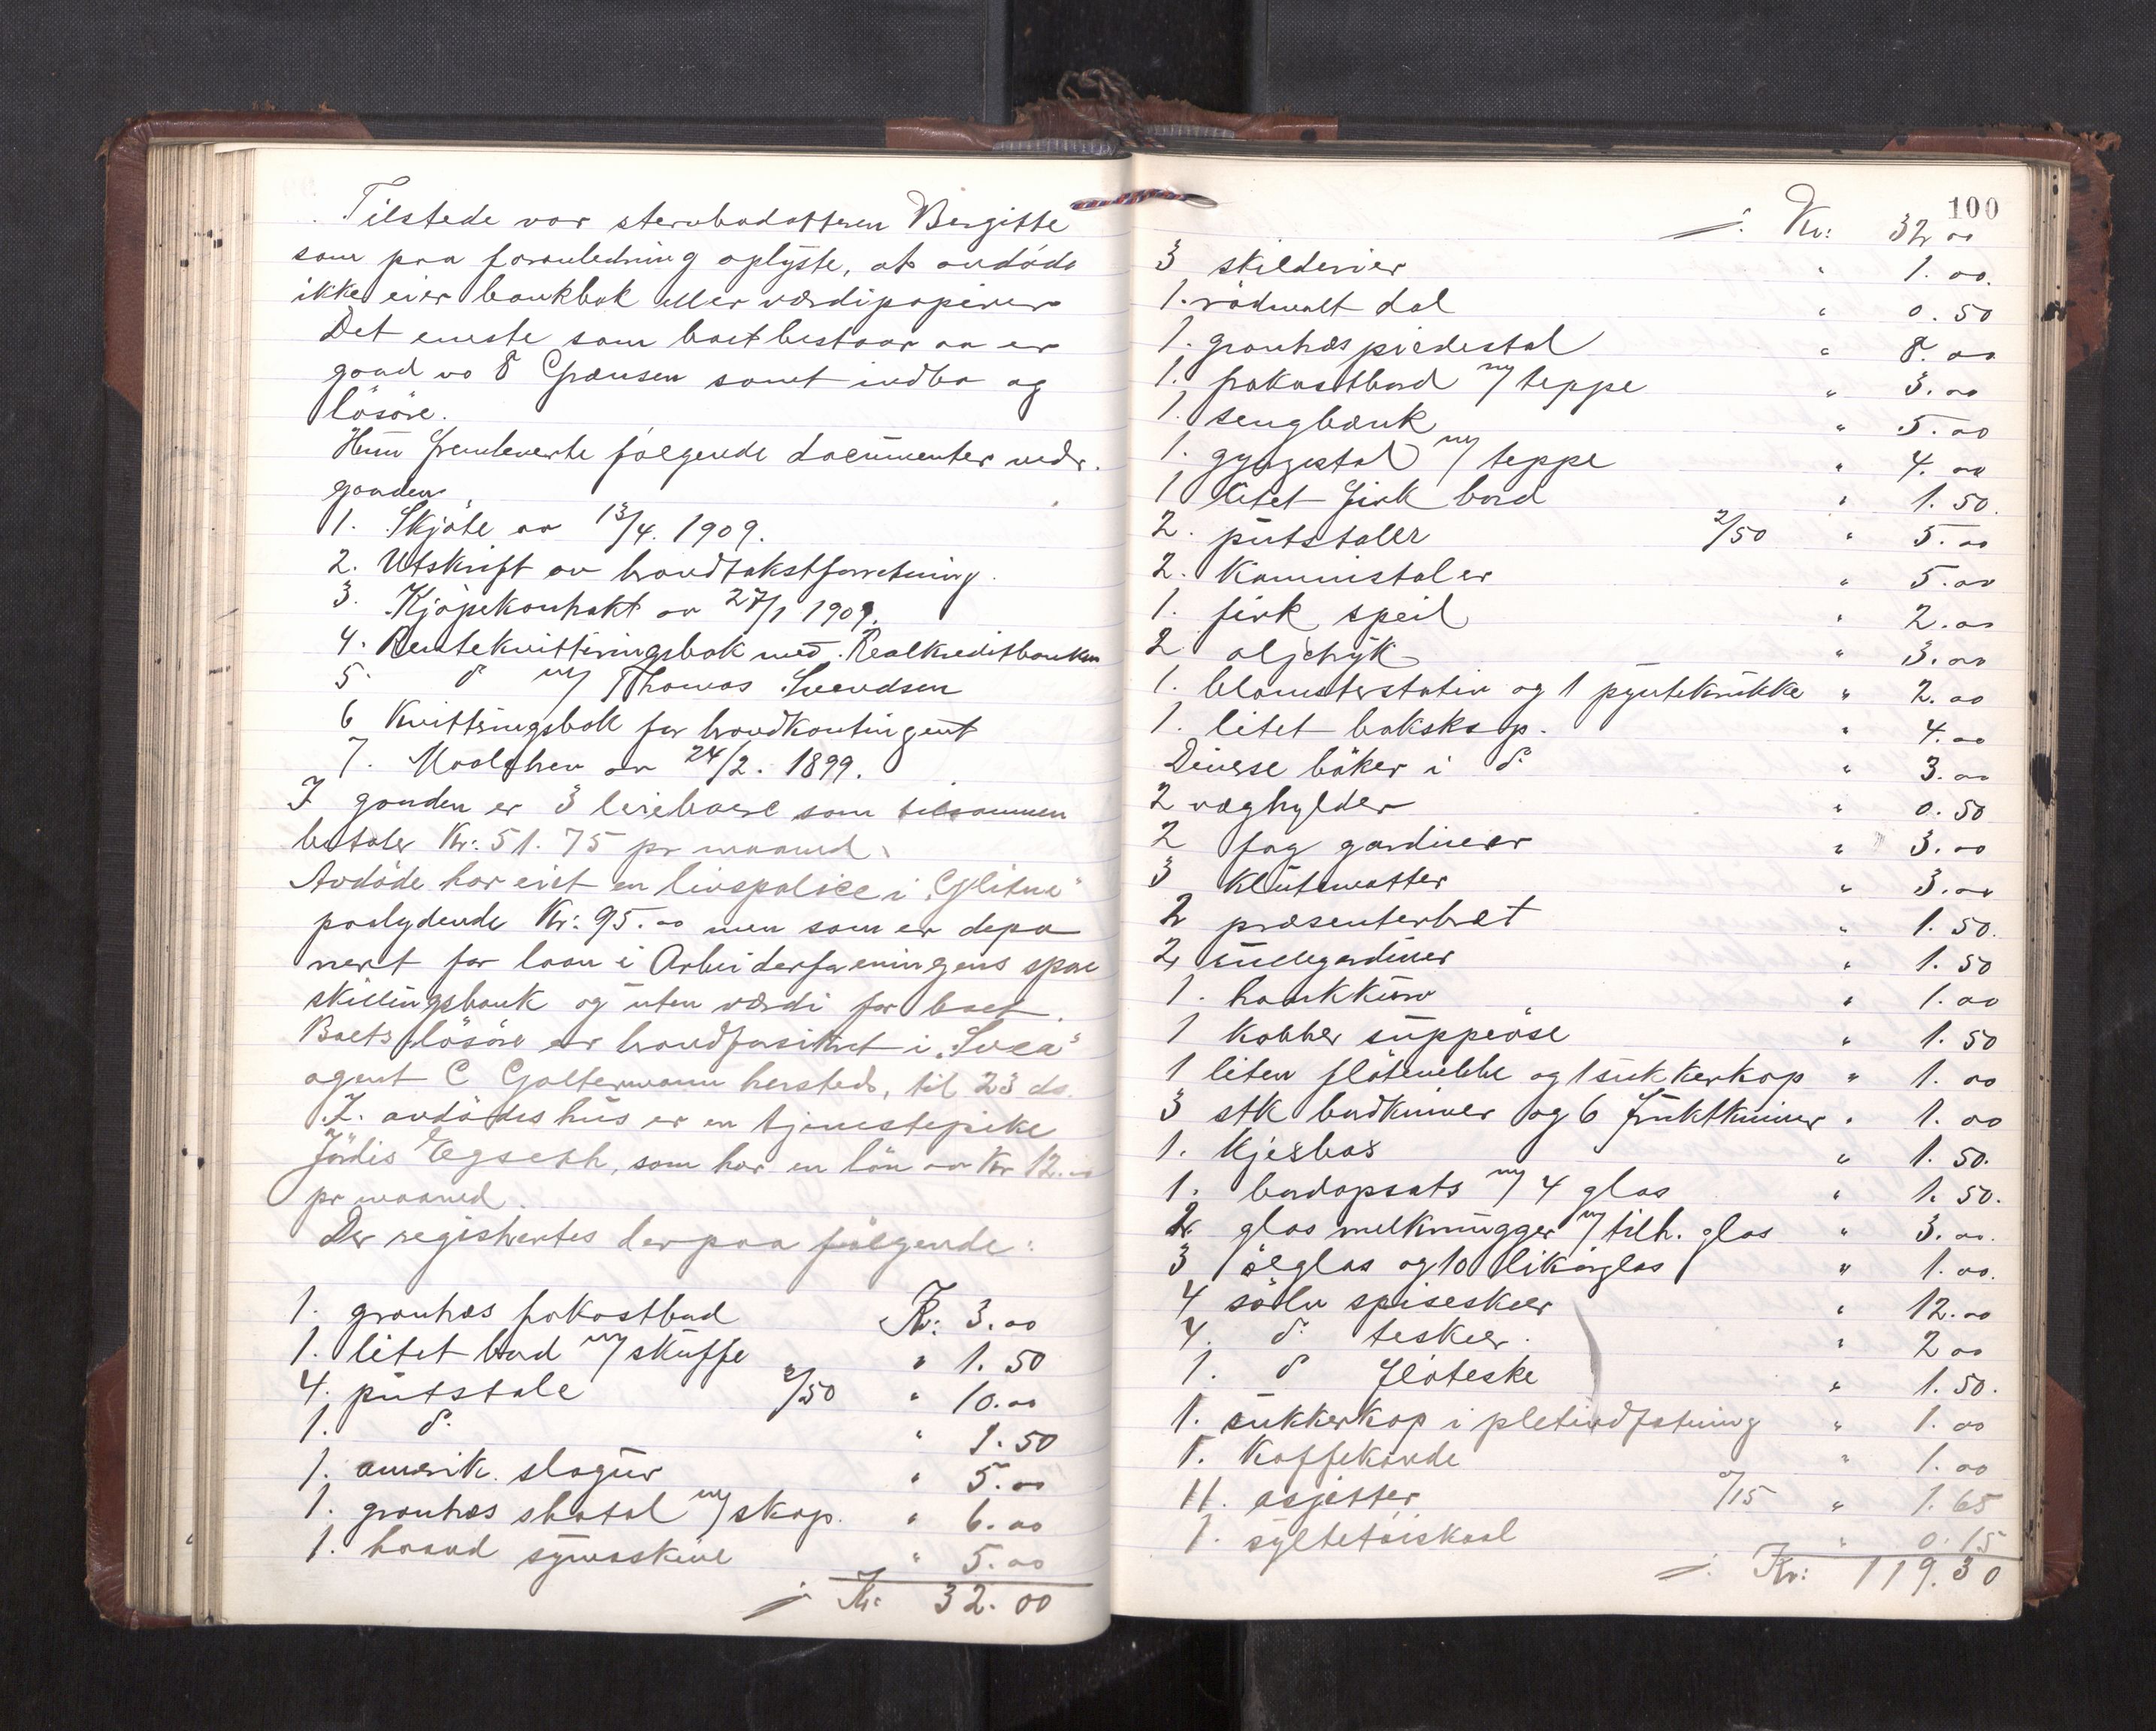 Tilstede var stervbodatteren Bergitte
som paa foranledning oplyste, at avdøde
ikke eier bankbok eller værdipapirer
Det eneste som boet bestaar av er
gaard no 8 Grænsen samt indbo og
løsøre.
Hun fremleverte følgende documenter vedr.
gaarden.
1. Skjøte av 13/4. 1909.
2. Utskrift av brandtakstforretning.
3. Kjøpekontrakt av 27/1 1909.
4. Rentekvitteringsbok med Realkreditbanken
5. d° m/ Thomas Svendsen
6 Kvitteringsbok for brandkontingent
7. Maalebrev av 24/2. 1899.
I gaarden er 3 leieboere som tilsammen
betaler Kr: 51. 75 pr maaned.
Avdøde har eiet en livspolice i "Glitne"
paalydende Kr: 95.00 men som er depo
nert for laan i Arbeiderforeningens spare
skillingsbank og uten værdi for boet.
Boets løsøre er brandforsikret i "Svea"
agent C Goltermann hersteds, til 23 ds.
I. avdødes hus er en tjenestepike
Jørdis Egseth, som har en løn av Kr 12.00
pr maaned.
Der registrertes derpaa følgende:
1. granhæs frokostbord Kr: 3.00
1. litet bord m/ skuffe " 1. 50
4. putstole 2/50 " 10.00
1. d° " 1. 50
1. amerik. slagur " 5.00
1. granhæs skatol m/ skap. " 6.00
1. haand symaskine " 5.00
Kr: 32.00
100
Kr: 32 00
3 skilderier " 1. 00.
1. rødmalt dal " 0. 50
1. granhæs piedestal " 8. 00
1. frokostbord m/ teppe " 3. 00
1. sengbænk " 5. 00
1. gyngestol m/ teppe " 4. 00
1 litet firk bord " 1. 50.
2. putstoler 2/50 " 5. 00
2. Kaministoler " 5. 00
1. firk speil " 2. 00
2 oljetryk " 3. 00
1. blomsterstativ og 1 pyntekrukke " 2. 00
1. litet bokskap. " 4. 00
Diverse bøker i d° " 3. 00
2 væghylder " 0. 50
2 fag gardiner " 3. 00
3 klutematter " 3. 00
2 præsenterbret " 1. 50.
2 rullegardiner " 1. 50
1. hankkurv " 1. 00
1 kobber suppeøse " 1. 50
1 liten fløtemugge og 1 sukkerkop " 1. 00
3 stk bordkniver og 6 fruktkniver " 1. 00
1. Kjeksbos " 1. 50.
1. bordopsats m/ 4 glas " 1. 50.
2 glas melkmugger m/ tilh. glas " 3. 00.
3 ølglas og 10 likørglas " 1. 00.
4 sølv spiseskeer " 12. 00
4. d° teskeer. " 2 00
1. d° fløteske " 1. 50.
1. sukkerkop i pletindfatning " 1. 00
1. Kaffekande " 1. 00
11. asjetter a/15 " 1. 65
1. syltetøiskaal " 0. 15
Kr: 119. 30